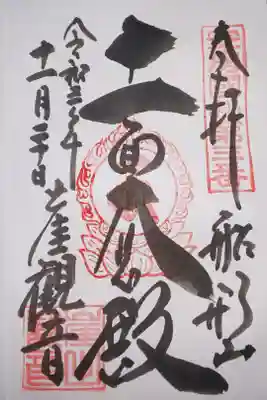 奉拝
船形山
十一面大悲殿
崖觀音
令和三年
十一月二十日